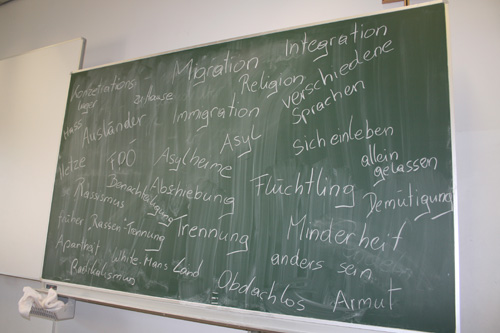 Migration Integration
Konzetrations-
lager
zuhause
Religion
verschiedene
Sprachen
Hass
Ausländer
Immigration
Asyl
sich einleben
Hetze
FPÖ
Asylheime
allein
gelassen
Rassismus
Benachteiligung
Abschiebung
Flüchtling
Demütigung
früher Rassen-Trennung
Trennung
Minderheit
Apartheit
White-Mans Land
anders sein
Radikalismus
Obdachlos
Armut